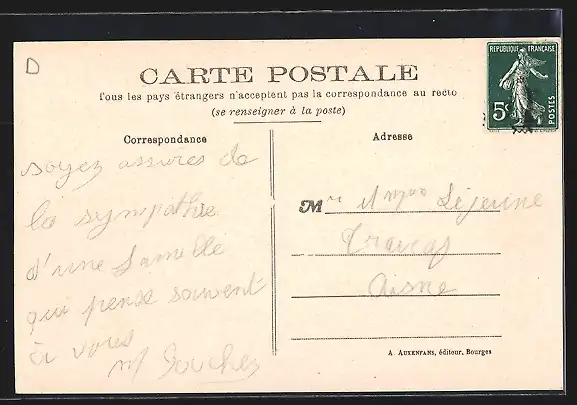 D
CARTE POSTALE
Tous les pays étrangers n'acceptent pas la correspondance au recto
(se renseigner à la poste)
RÉPUBLIQUE FRANÇAISE
5c
POSTES
Correspondance
Adresse
soyez assurés de
la sympathie
d'une famille
qui pense souvent
à vous
Mr Mme Lejeune
Aisne
A. AUXENFANS, éditeur, Bourges